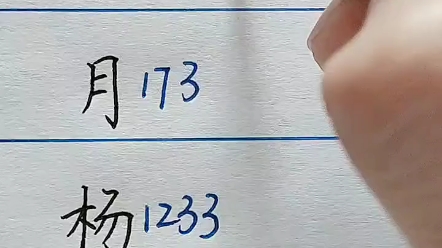 月173
杨1233